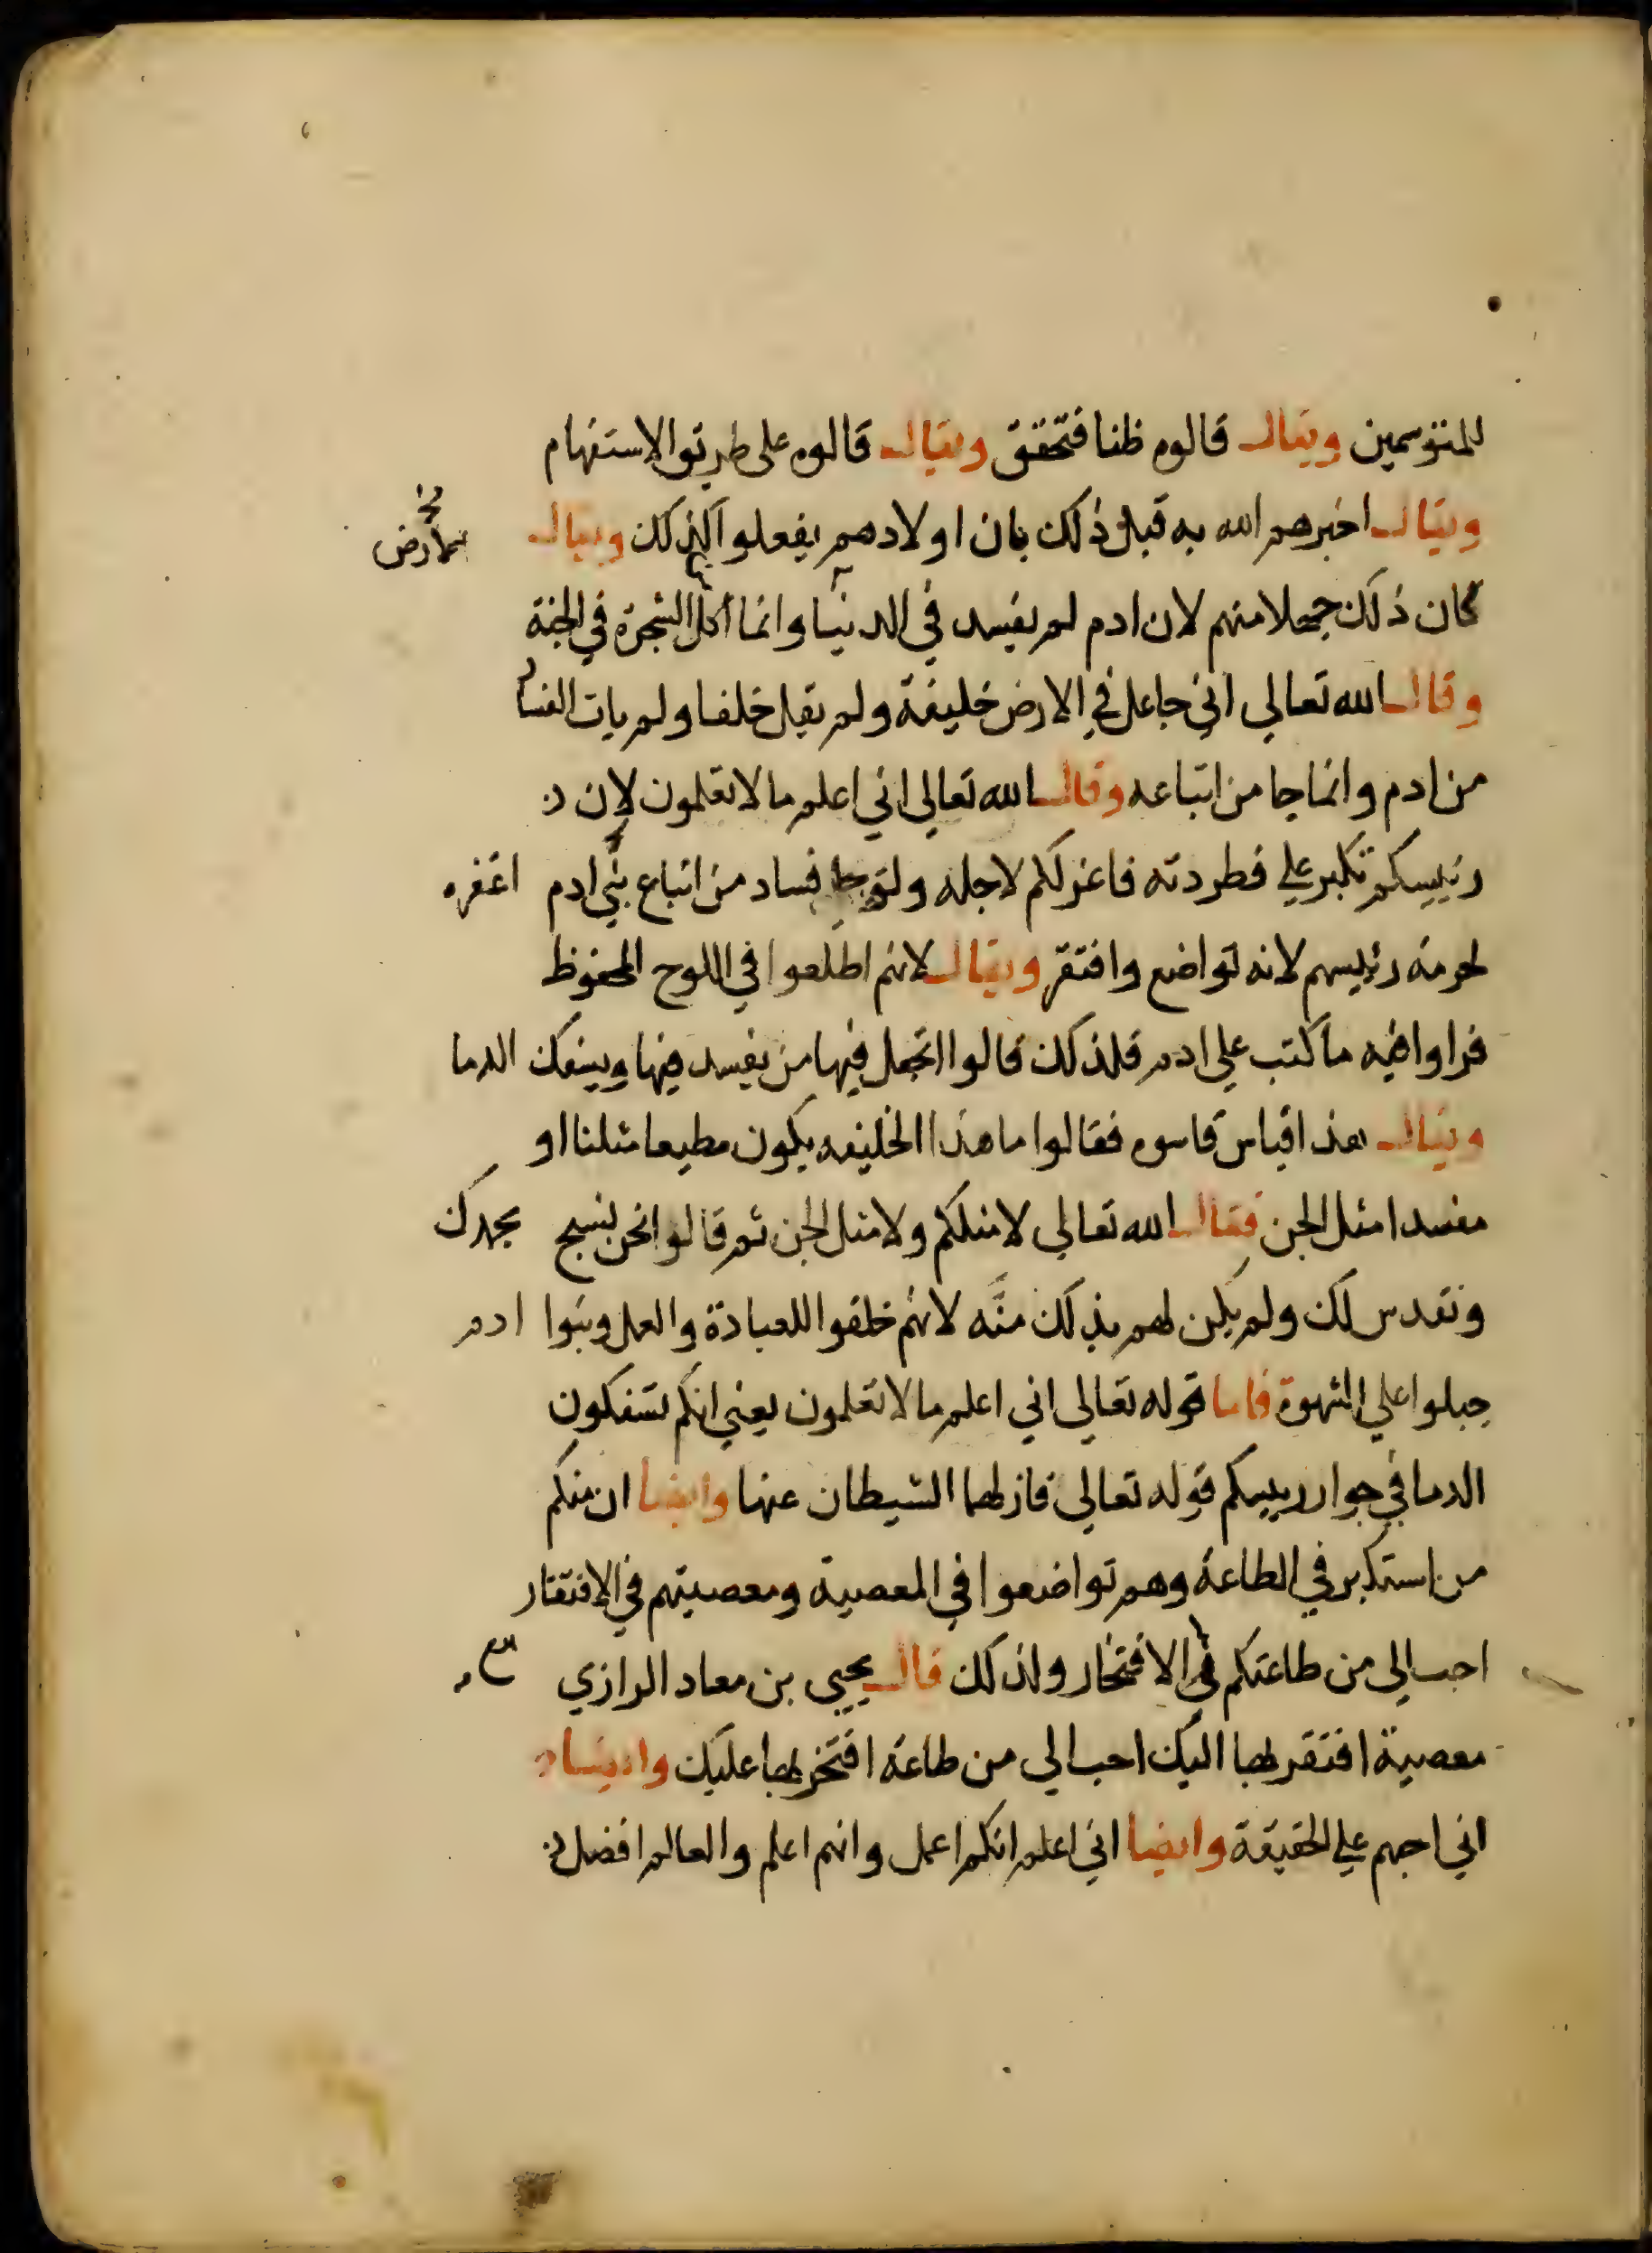 للمتوسمين ويقال قالوه ظنا فتحقق ويقال قالوه على طريق الاستفهام
ويقال اخبرهم الله به قبل ذلك بان اولادهم يفعلوا كذلك ويقال
كان ذلك جهلا منهم لان ادم لم يفسد في الدنيا وانما اكل الشجرة في الجنة
وقال الله تعالي اني جاعل في الارض خليفة ولم يقل خلفا ولم يات الفساد
من ادم وانما جا من اتباعه وقال الله تعالي اني اعلم ما لا تعلمون لان
رئيسكم تكبر علي فطردته فاعزلكم لاجله ولو جا فساد من اتباع بني ادم اغفره
لحرمة رئيسهم لانه تواضع وافتقر ويقال لانهم اطلعوا في اللوح المحفوظ
فراوا فيه ما كتب علي ادم فلذلك قالوا اتجعل فيها من يفسد فيها ويسفك الدما
ويقال هذا قياس قاسوه فقالوا ما هذا الخليفه يكون مطيعا مثلنا او
مفسدا مثل الجن فقال الله تعالي لا مثلكم ولا مثل الجن ثم قالوا نحن نسبح بحمدك
ونقدس لك ولم يكن لهم بذلك منّه لانهم خلقوا للعبادة والعمل وبنوا ادم
جبلوا علي الشهوة فاما قوله تعالي اني اعلم ما لا تعلمون يعني انكم تسفكون
الدما في جوار رييسكم قوله تعالي فازلهما الشيطان عنها وايضا ان منكم
من استكبر في الطاعة وهم تواضعوا في المعصية ومعصيتهم في الافتقار
احب الي من طاعتكم في الافتخار ولذلك قال يحيي بن معاد الرازي
معصية افتقر بها اليك احب الي من طاعة افتخر بها عليك وايضا
اني احبهم علي الحقيقة وايضا اني اعلم انكم اعمل وانهم اعلم والعالم افضل